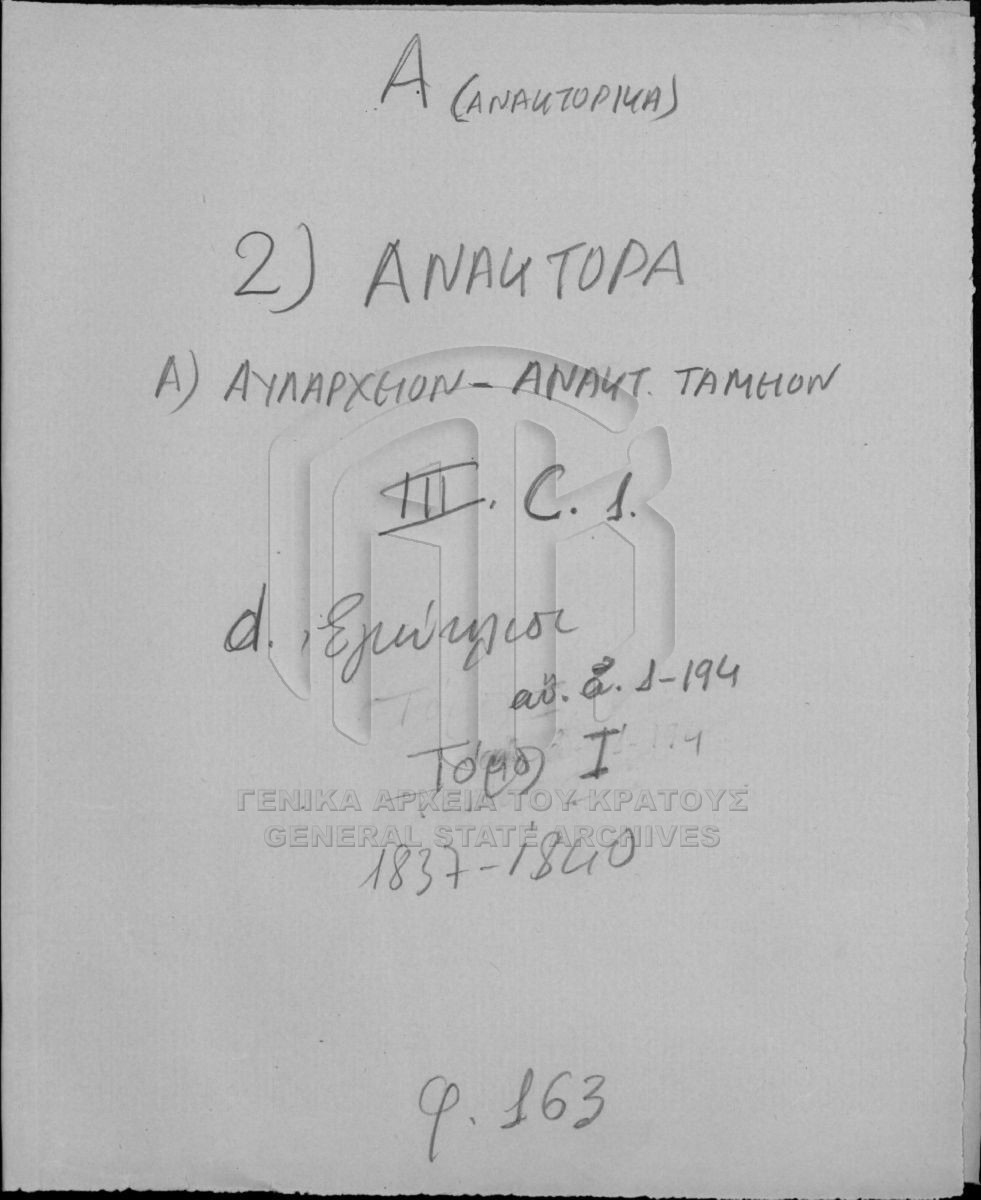 Α (ΑΝΑΚΤΟΡΙΚΑ)
2) ΑΝΑΚΤΟΡΑ
Α) ΑΥΛΑΡΧΕΙΟΝ - ΑΝΑΚΤ. ΤΑΜΕΙΟΝ
III. C. 1.
d. Ἐγκύκλιοι
αὔ. ἀ. 1-194
Τόμος I
ΓΕΝΙΚΑ ΑΡΧΕΙΑ ΤΟΥ ΚΡΑΤΟΥΣ
GENERAL STATE ARCHIVES
1837-1840
φ. 163